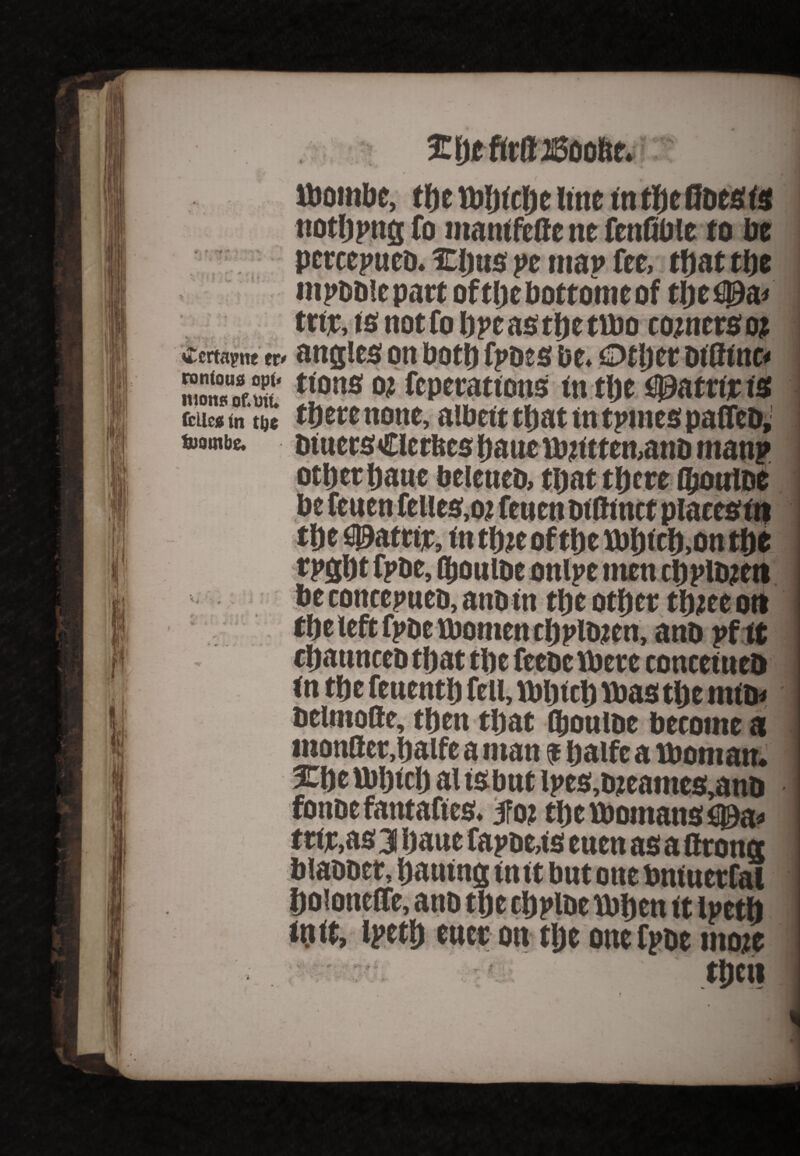 The first Booke.
wombe, the whiche line in the sides is
nothyng so manifeste ne sensible to be
percepued. Thus ye may see, that the
myddle part of the bottome of the Ma-
trix, is not so hye as the two corners or
angles on both sydes be. Other distinc-
tions or seperations in the Matrix is
there none, albeit that in tymes passed,
diuers Clerkes haue written, and many
other haue beleued, that there shoulde
be seuen selles, or seuen distinct places in
the Matrix, in thre of the which, on the
ryght syde, shoulde onlye men chyldren
be concepued, and in the other three on
the left syde women chyldren, and yf it
chaunced that the seede were conceiued
in the seuenth sell, which was the mid-
delmoste, then that shoulde become a
monster, halfe a man & halfe a woman.
The which al is but lyes, dreames, and
fonde fantasies. For the womans Ma-
trix, as I haue sayde, is euen as a strong
bladder, hauing in it but one vniuersal
holonesse, and the chylde when it lyeth
in it, lyeth euer on the one syde more
then
Certayne er-
ronious opi-
nions of. vii.
selles in the
wombe.